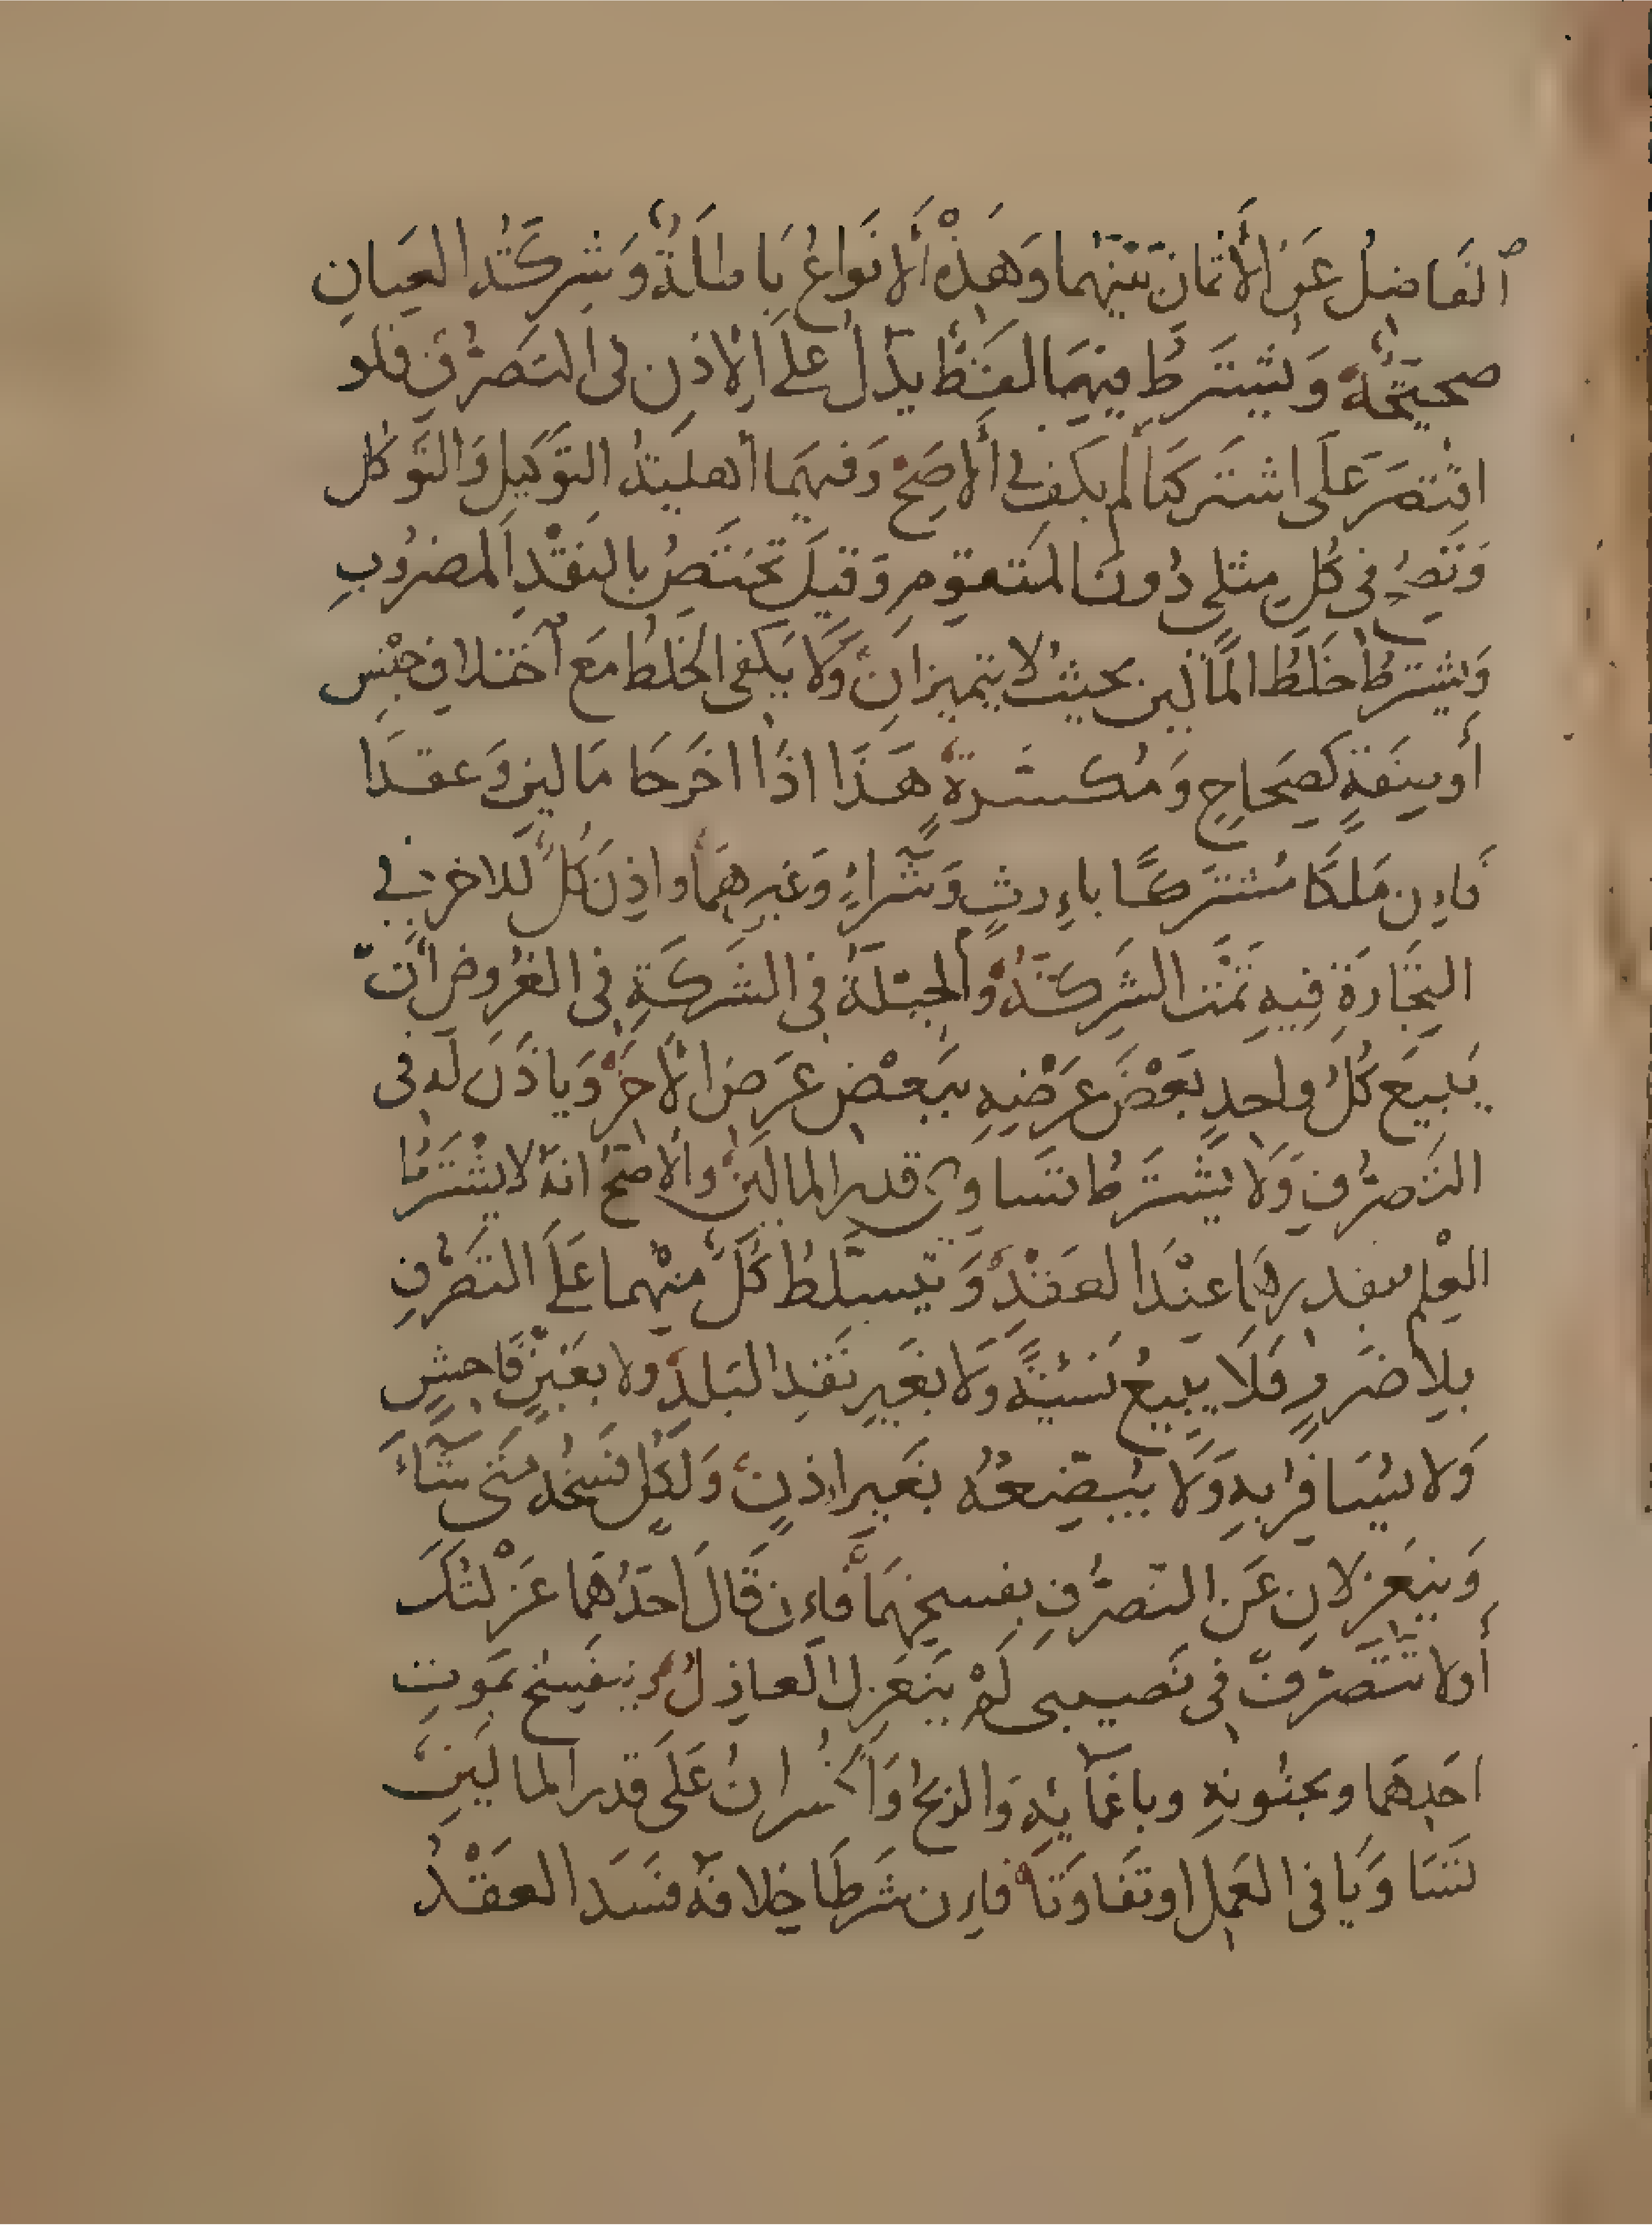 ٱلفَاضِلُ عَنِ الأَثْمَانِ بَيْنَهُما وَهَذِهِ ألأنوَاعُ بَاطِلَةٌ وَشِركَةُ العِيَانِ
صحيحَةٌ وَيُشتَرَطُ فِيهَا لَفظٌ يَدُلُ عَلَى الإذنِ في التَصَرُّفِ فلو
اقتَصَرَ عَلَى اشتَركنَا لم يكفِ في ألأصَحِّ وَفيهِمَا أهليَةُ التَوكِيلِ وَالتَوكل
وَتَصِحُ في كُلِ مِثلى دُونَ المُتَقَوِمِ وَقيلَ تَختَصُ بالنَقْدِ المضرُوبِ
وَيُشترطُ خَلطُ المَالَين بحيثُ لا يتميزانِ وَلَا يَكفى الخَلطُ مَعَ ٱختلافِ جِنْسٍ
أَو صِفَةٍ كصِحَاحٍ وَمُكسَّرةٍ هَذَا اذَا اخرَجَا مَالين وَعقدَا
فَاءِن مَلكَا مُشتَرَكًا باءِرثٍ وَشِّرَاءٍ وَغيرِهِمَا واذِنَ كُلٌ للاخرِ في
التِجَارَةِ فِيهِ تَمَّت الشَرِكَةُ وَالحِيلَةُ في الشركَةِ في العُرُوضِ أنّ
يَبيعَ كُلُ واحدٍ بَعْضَ عَرْضِهِ بِبَعْضِ عَرَضِ الأخَرِ وَياذَنَ لَه في
التَصَرُّفِ وَلَا يُشترَطُ تسَاوِي قدر المالَينِ والأصَحُّ انهُ لا يُشتَرَطُ
العِلم بقدرهِمَا عِنْدَ العَقْدِ وَ يَتَسَلَّطُ كُلٌ مِنْهُما عَلَى التَصَرُّفِ
بِلَا ضَررٍ فَلَا يَبيعُ نَسيئَةً وَلَا بغَيرِ نَقدِ البَلدِ ولا بغَبنٍ فَاحِشٍ
وَلا يُسَافِرُ بِهِ وَلَا يُبضِعُهُ بغَيرِ اذنٍ وَلكُلٍ فَسخُهُ متَى شَآءَ
وَينعَزلانِ عَن التَصرُّفِ بفسخِهمَا فاءِن قَالَ احَدُهُمَا عَزَلتُكَ
أَولا تَتَصرَّفْ في نَصيبى لَمْ يَنعَزِلِ العَاذِلُ وَينفَسِخُ بمَوتِ
احَدِهِمَا وبجنُونِهِ وباغمآئِهِ وَالربحُ وَالخُسرانُ عَلَى قدر المالَينِ
تسَاوَيَا في العَمل اوتَفَاوَتَا فاءِن شَرطَا خِلافَهُ فَسَدَ العَقْدُ